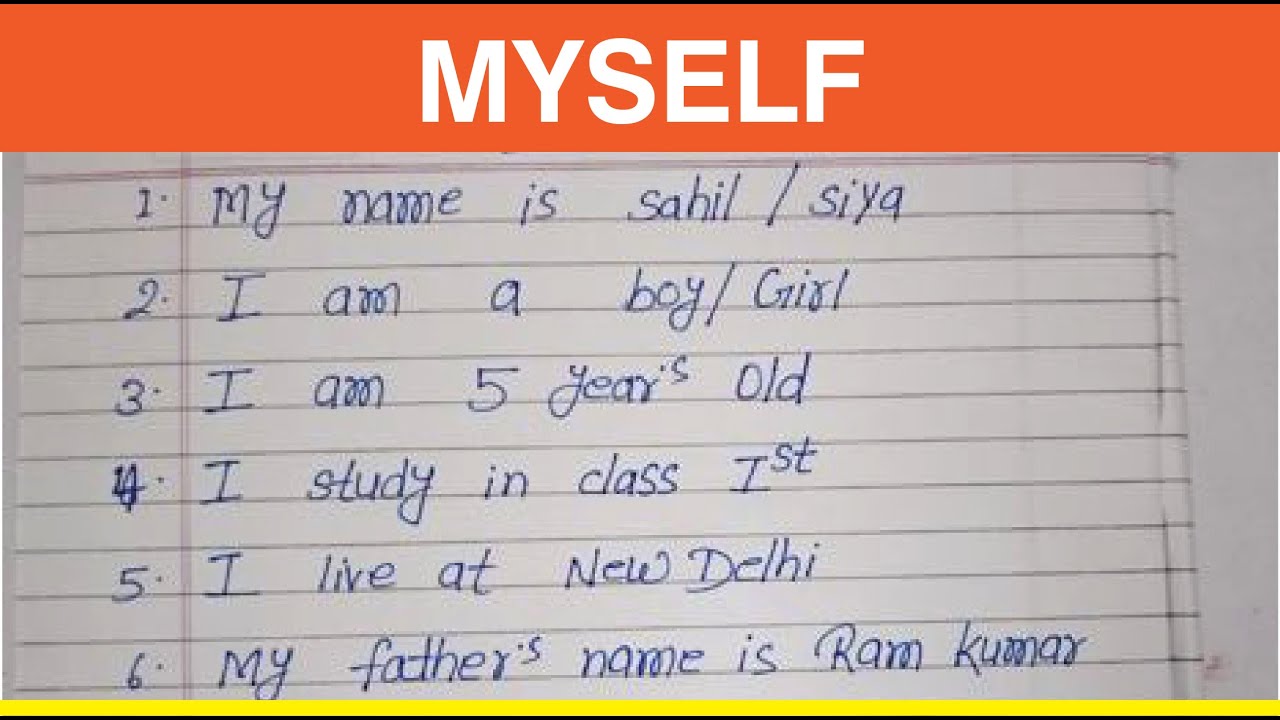 MYSELF
1. My name is sahil / siya
2. I am a boy/Girl
3. I am 5 year's old
4. I study in class Ist
5. I live at New Delhi
6. My father's name is Ram kumar